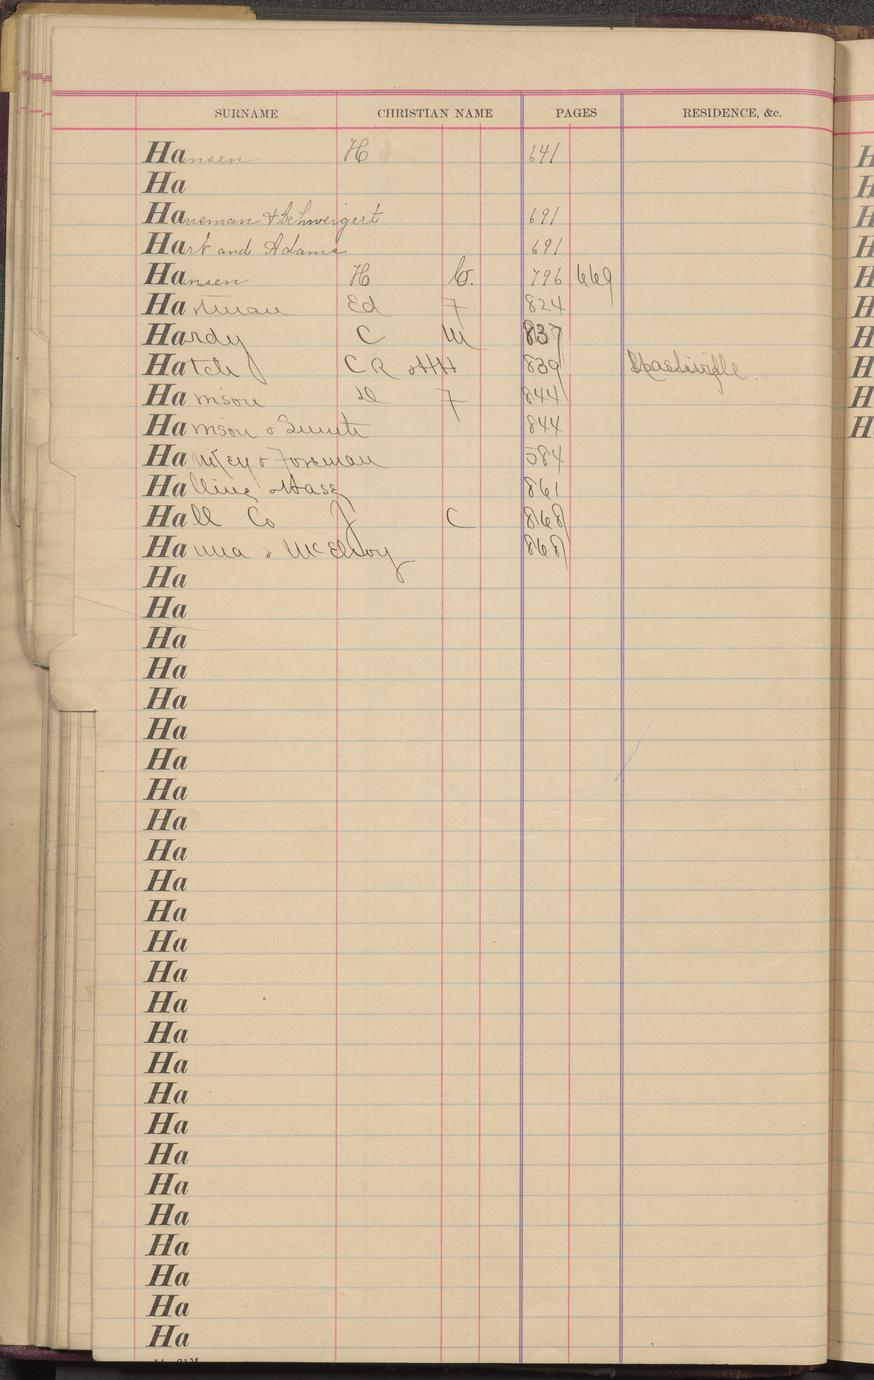 SURNAME CHRISTIAN NAME PAGES RESIDENCE, &c.
Hansen H 641
Ha
Hansman & Schweigert 691
Hart and Adams 691
Hansen H C. 796 669
Hartman Ed F 824
Hardy C M 837
Hatch C R & HH 839 Nashville.
Harrison D F 844
Harrison & Smith 844
Foreman 584
Halling & Hase 861
Hall Co J C 868
Hanna & McElroy 868
Ha
Ha
Ha
Ha
Ha
Ha
Ha
Ha
Ha
Ha
Ha
Ha
Ha
Ha
Ha
Ha
Ha
Ha
Ha
Ha
Ha
Ha
Ha
Ha
Ha
Ha